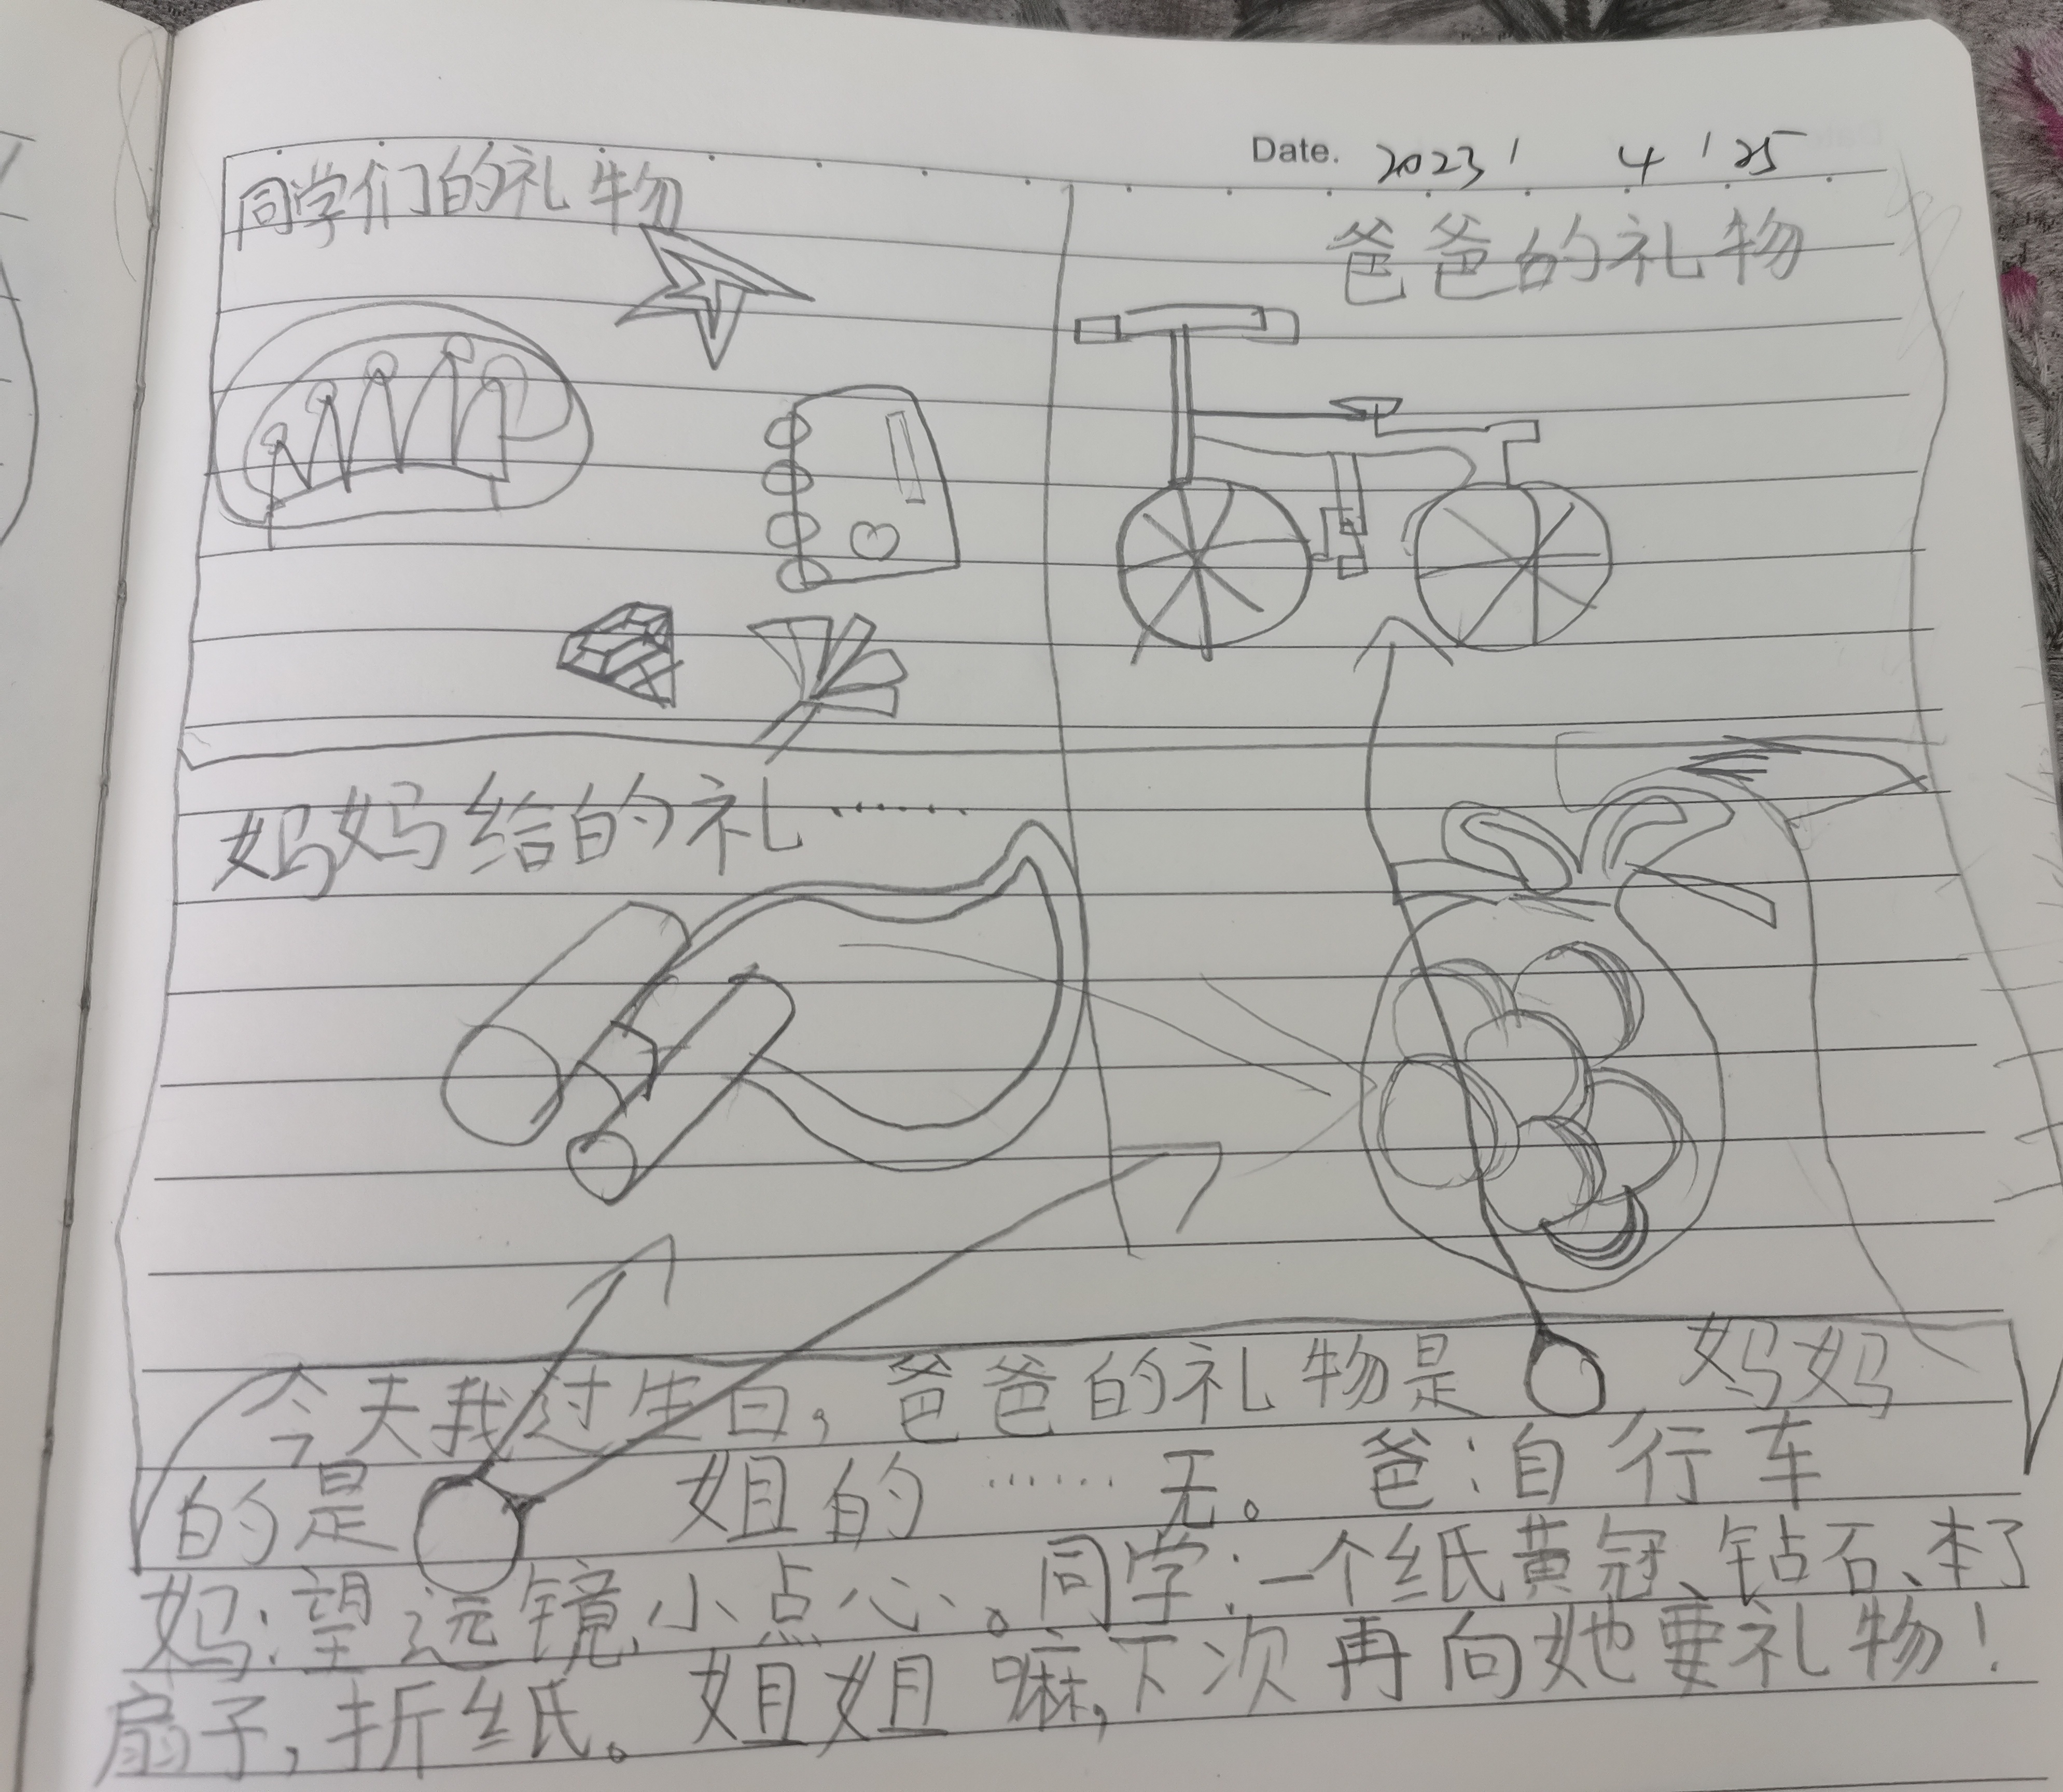 Date. 2023 / 4 / 25
同学们的礼物
爸爸的礼物
妈妈给的礼……
今天我过生日，爸爸的礼物是 妈妈
的是 姐的……无。爸：自行车
妈：望远镜、小点心、。同学：一个纸黄冠、钻石、本子
扇子，折纸。姐姐嘛，下次再向她要礼物！